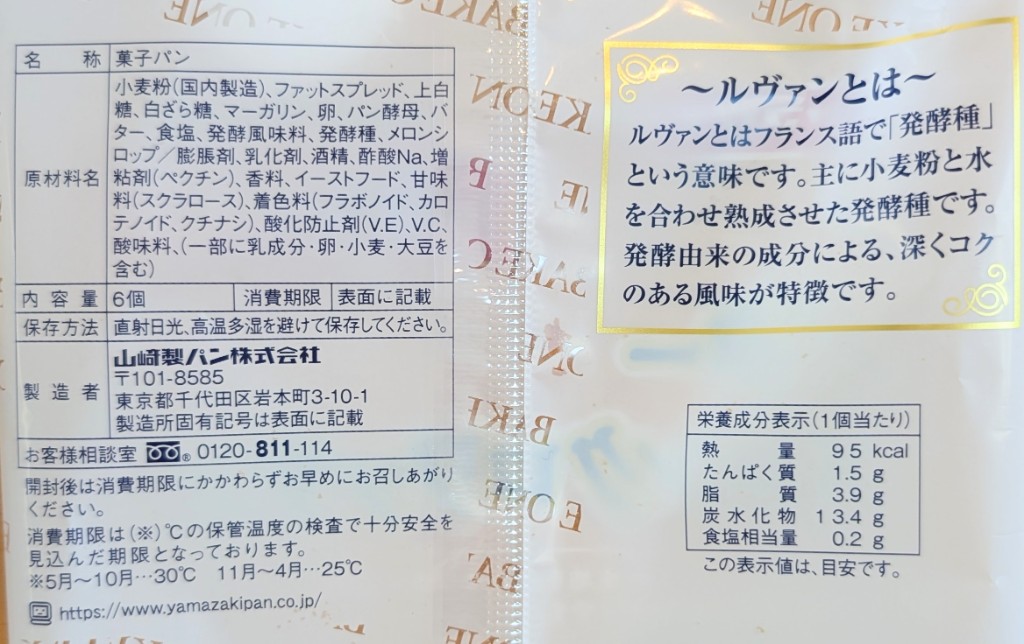 名称 菓子パン
原材料名 小麦粉(国内製造)、ファットスプレッド、上白
糖、白ざら糖、マーガリン、卵、パン酵母、バ
ター、食塩、発酵風味料、発酵種、メロンシ
ロップ／膨脹剤、乳化剤、酒精、酢酸Na、増
粘剤(ペクチン)、香料、イーストフード、甘味
料(スクラロース)、着色料(フラボノイド、カロ
テノイド、クチナシ)、酸化防止剤(V.E)、V.C、
酸味料、(一部に乳成分・卵・小麦・大豆を
含む)
内容量 6個 消費期限 表面に記載
保存方法 直射日光、高温多湿を避けて保存してください。
製造者 山崎製パン株式会社
〒101-8585
東京都千代田区岩本町3-10-1
製造所固有記号は表面に記載
お客様相談室 ® 0120-811-114
開封後は消費期限にかかわらずお早めにお召しあがり
ください。
消費期限は(※)℃の保管温度の検査で十分安全を
見込んだ期限となっております。
※5月〜10月…30℃ 11月〜4月…25℃
https://www.yamazakipan.co.jp/
〜ルヴァンとは〜
ルヴァンとはフランス語で「発酵種」
という意味です。主に小麦粉と水
を合わせ熟成させた発酵種です。
発酵由来の成分による、深くコク
のある風味が特徴です。
栄養成分表示(1個当たり)
熱量 95 kcal
たんぱく質 1.5 g
脂質 3.9 g
炭水化物 13.4 g
食塩相当量 0.2 g
この表示値は、目安です。